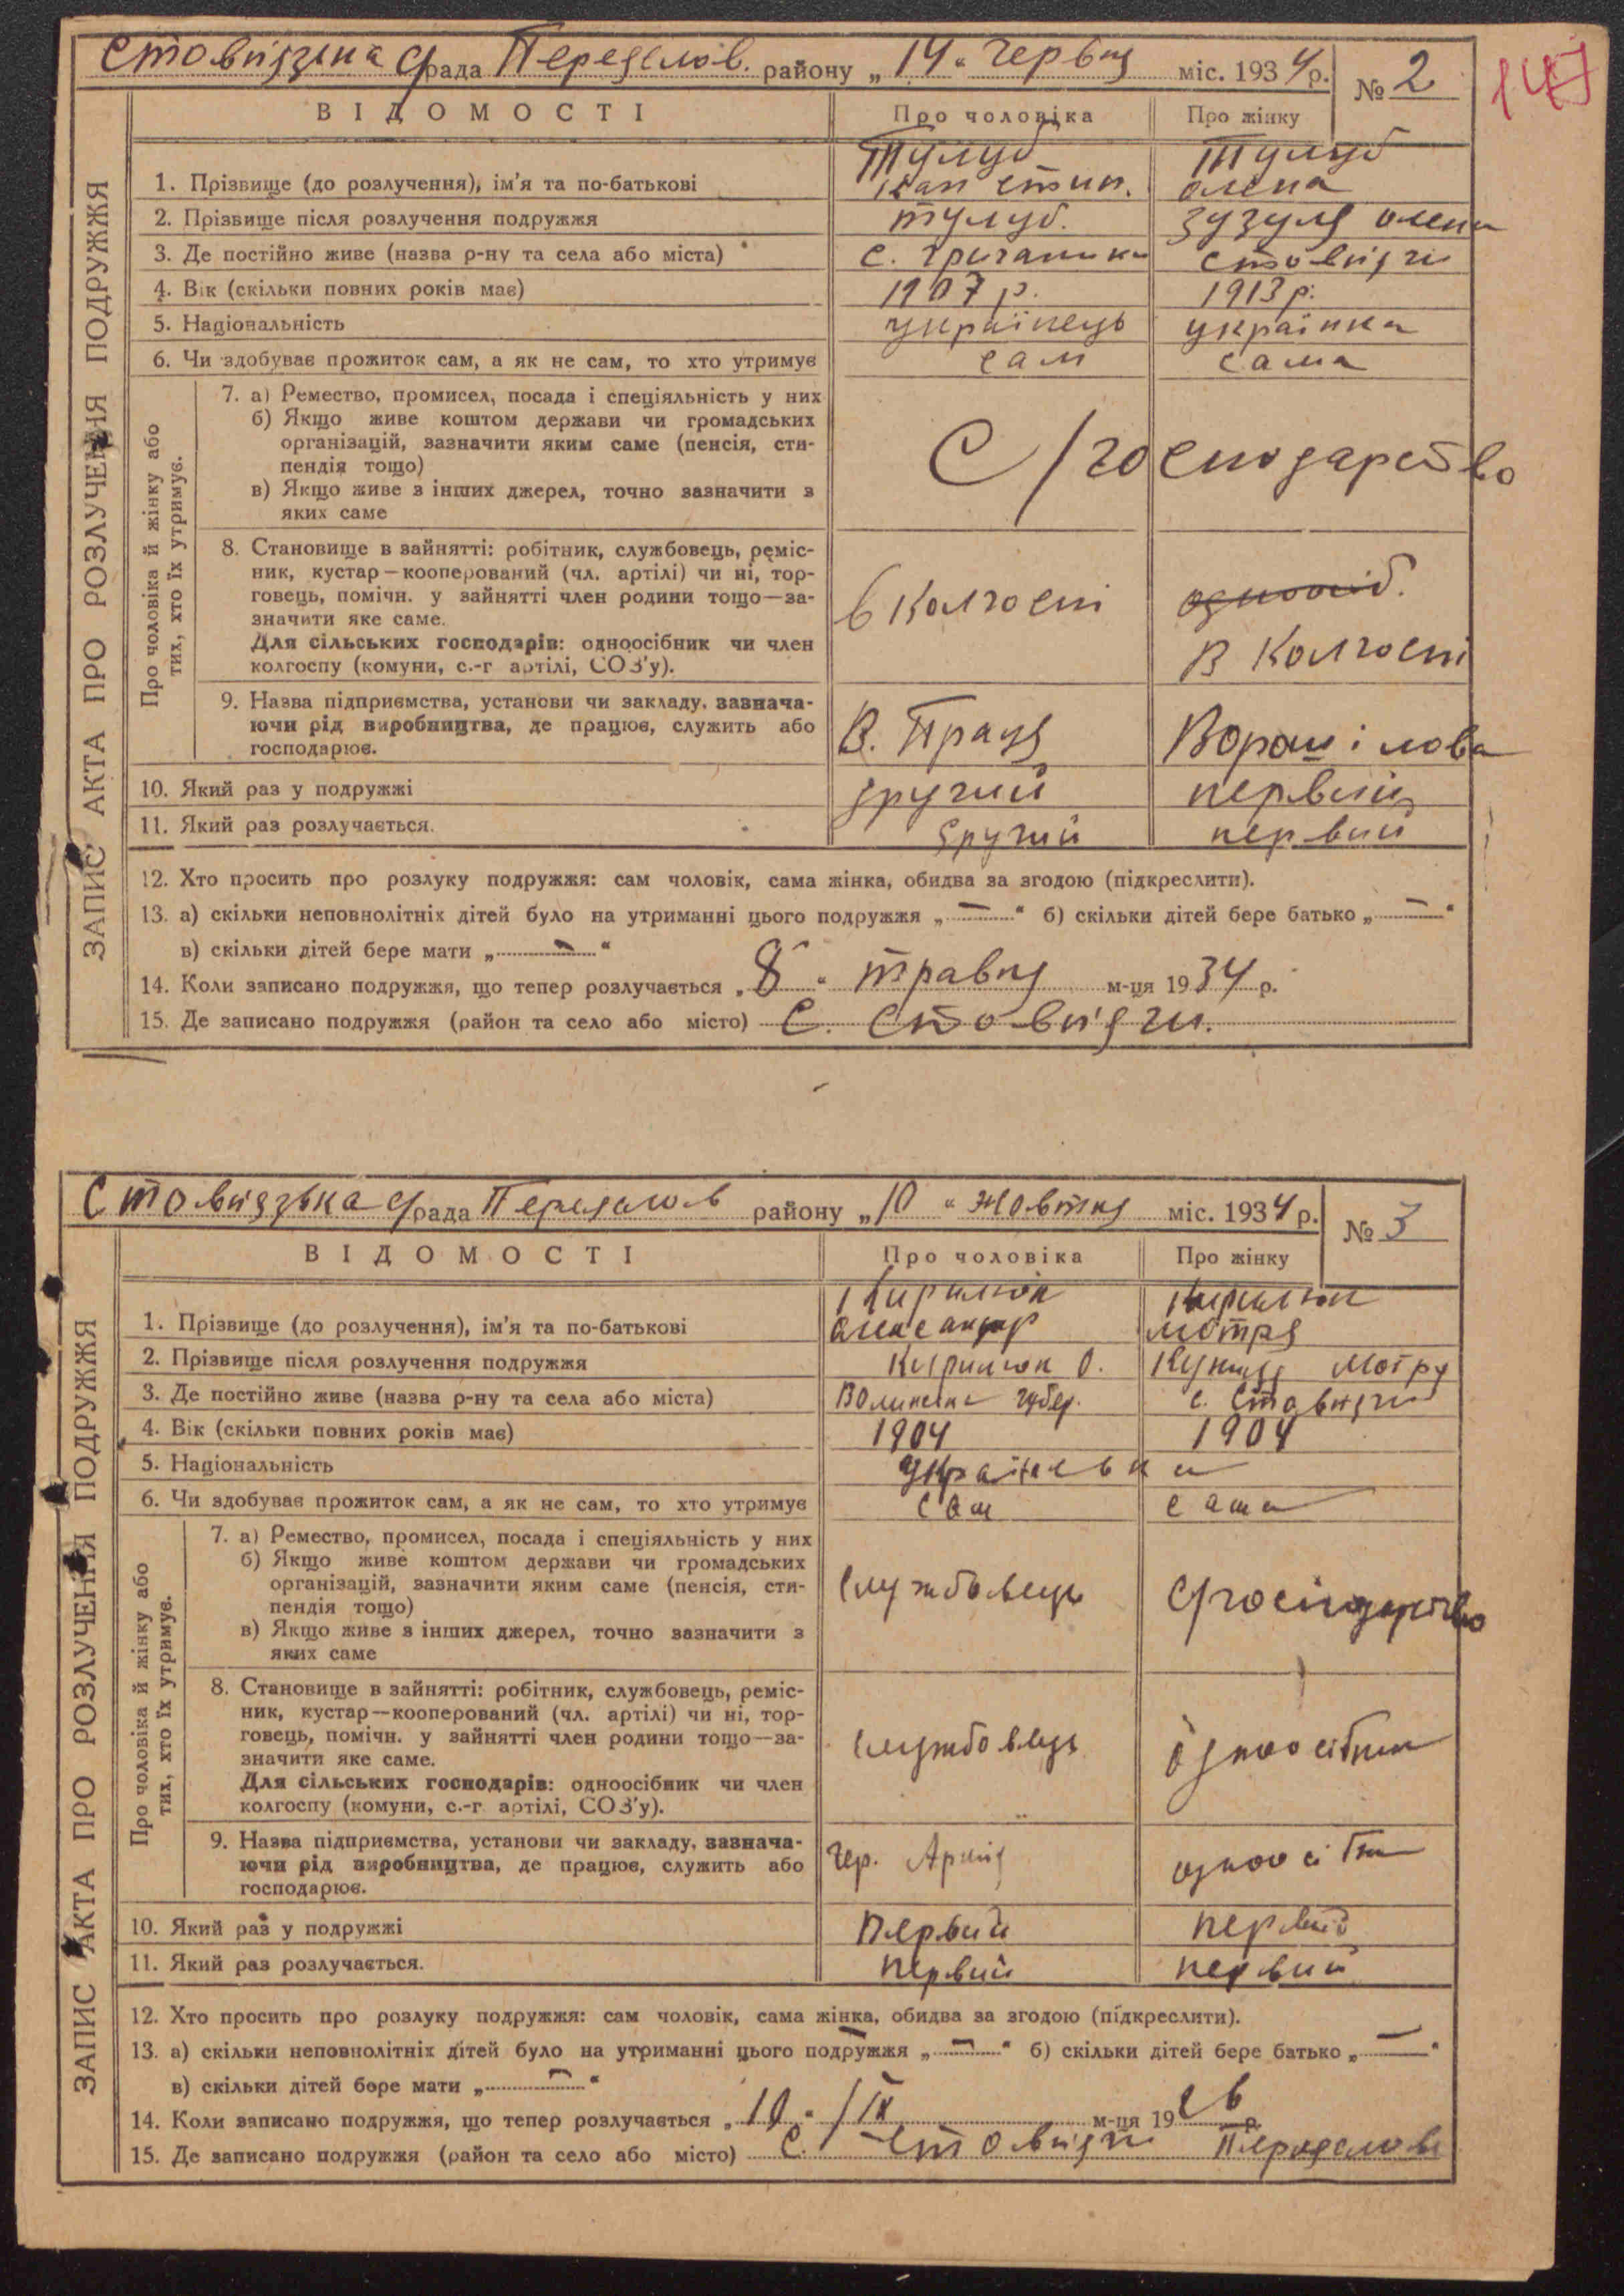 Стовпязька с/рада Переяслов. району „14“ червня міс. 1934 р. № 2
147
ВІДОМОСТІ Про чоловіка Про жінку
ЗАПИС АКТА ПРО РОЗЛУЧЕННЯ ПОДРУЖЖЯ
Тулуб Тулуб
1. Прізвище (до розлучення), ім'я та по-батькові олена
2. Прізвище після розлучення подружжя тулуб. зузуля олена
3. Де постійно живе (назва р-ну та села або міста) с. стовпяги
4. Вік (скільки повних років має) 1907 р. 1913 р.
5. Національність українець українка
6. Чи здобуває прожиток сам, а як не сам, то хто утримує сам сама
Про чоловіка й жінку або тих, хто їх утримує.
7. а) Ремество, промисел, посада і спеціяльність у них
б) Якщо живе коштом держави чи громадських
організацій, зазначити яким саме (пенсія, сти-
пендія тощо)
С/господарство
в) Якщо живе з інших джерел, точно зазначити з
яких саме
8. Становище в зайнятті: робітник, службовець, реміс-
ник, кустар—кооперований (чл. артілі) чи ні, тор-
говець, помічн. у зайнятті член родини тощо—за-
значити яке саме.
Для сільських господарів: одноосібник чи член
колгоспу (комуни, с.-г артілі, СОЗ'у).
в Колгоспі одноосіб.
В Колгоспі
9. Назва підприємства, установи чи закладу, зазнача-
ючи рід виробництва, де працює, служить або
господарює.
В. Праця Ворошілова
10. Який раз у подружжі другий первий
11. Який раз розлучається. другий первий
12. Хто просить про розлуку подружжя: сам чоловік, сама жінка, обидва за згодою (підкреслити).
13. а) скільки неповнолітніх дітей було на утриманні цього подружжя „—“ б) скільки дітей бере батько „—“
в) скільки дітей бере мати „—“
14. Коли записано подружжя, що тепер розлучається „8“ травня м-ця 1934 р.
15. Де записано подружжя (район та село або місто) С. Стовпяги.
Стовпязька с/рада Переяслов району „10“ жовтня міс. 1934 р. № 3
ВІДОМОСТІ Про чоловіка Про жінку
ЗАПИС АКТА ПРО РОЗЛУЧЕННЯ ПОДРУЖЖЯ
Кирилюк Кирилюк
1. Прізвище (до розлучення), ім'я та по-батькові Олександр мотря
2. Прізвище після розлучення подружжя Кирилюк О. Мотря
3. Де постійно живе (назва р-ну та села або міста) Волинська губер. с. Стовпяги
4. Вік (скільки повних років має) 1904 1904
5. Національність Українська
6. Чи здобуває прожиток сам, а як не сам, то хто утримує сам сама
Про чоловіка й жінку або тих, хто їх утримує.
7. а) Ремество, промисел, посада і спеціяльність у них
б) Якщо живе коштом держави чи громадських
організацій, зазначити яким саме (пенсія, сти-
пендія тощо)
службовець с/господарство
в) Якщо живе з інших джерел, точно зазначити з
яких саме
8. Становище в зайнятті: робітник, службовець, реміс-
ник, кустар—кооперований (чл. артілі) чи ні, тор-
говець, помічн. у зайнятті член родини тощо—за-
значити яке саме.
Для сільських господарів: одноосібник чи член
колгоспу (комуни, с.-г артілі, СОЗ'у).
службовець одноосібник
9. Назва підприємства, установи чи закладу, зазнача-
ючи рід виробництва, де працює, служить або
господарює.
Чер. Армія
10. Який раз у подружжі Первий первий
11. Який раз розлучається. первий первий
12. Хто просить про розлуку подружжя: сам чоловік, сама жінка, обидва за згодою (підкреслити).
13. а) скільки неповнолітніх дітей було на утриманні цього подружжя „—“ б) скільки дітей бере батько „—“
в) скільки дітей бере мати „—“
14. Коли записано подружжя, що тепер розлучається „10“ /IX м-ця 1926 р.
15. Де записано подружжя (район та село або місто) С. Стовпяги Переяслов